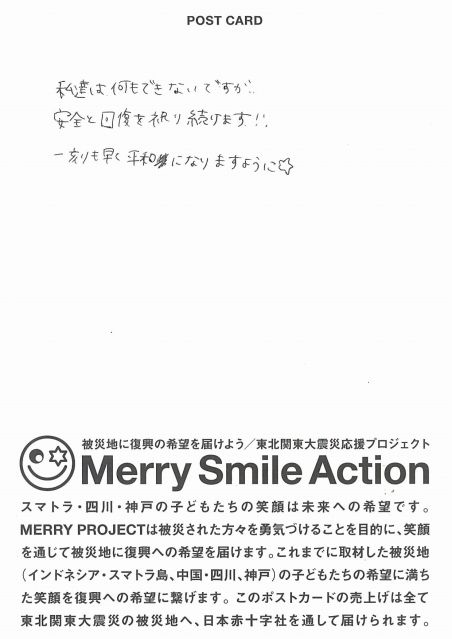 POST CARD
私達は何もできないですが、
安全と回復を祈り続けます!!
一刻も早く平和になりますように☆
被災地に復興の希望を届けよう／東北関東大震災応援プロジェクト
Merry Smile Action
スマトラ・四川・神戸の子どもたちの笑顔は未来への希望です。
MERRY PROJECTは被災された方々を勇気づけることを目的に、笑顔
を通じて被災地に復興への希望を届けます。これまでに取材した被災地
（インドネシア・スマトラ島、中国・四川、神戸）の子どもたちの希望に満ち
た笑顔を復興への希望に繋げます。このポストカードの売上げは全て
東北関東大震災の被災地へ、日本赤十字社を通して届けられます。